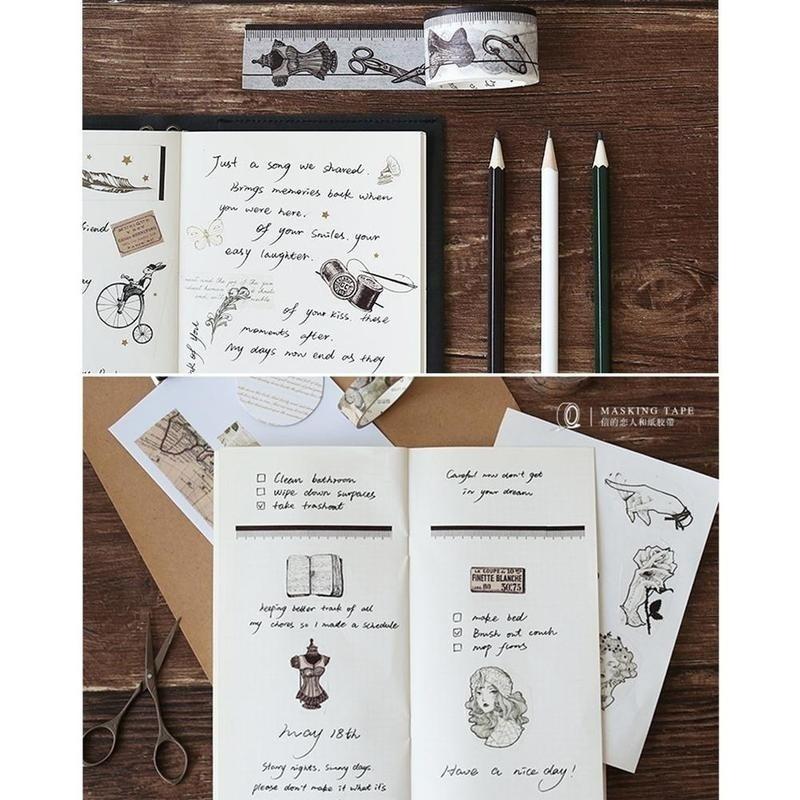 Just a song we shared.
Brings memories back when
you were here.
of your smiles. your
easy laughter.
of your kiss. these
moments after.
My days now end as they
MASKING TAPE
信的恋人和纸胶带
Clean bathroom
wipe down surfaces
take trashout
keeping better track of all
my chores so I made a schedule
may 18th
Starry nights. sunny days.
please don't make it what it's
Careful now don't get
in your dream
LA COUPE
FINETTE BLANCHE
80
30.75
make bed
Brush out couch
mop floors
Have a nice day!